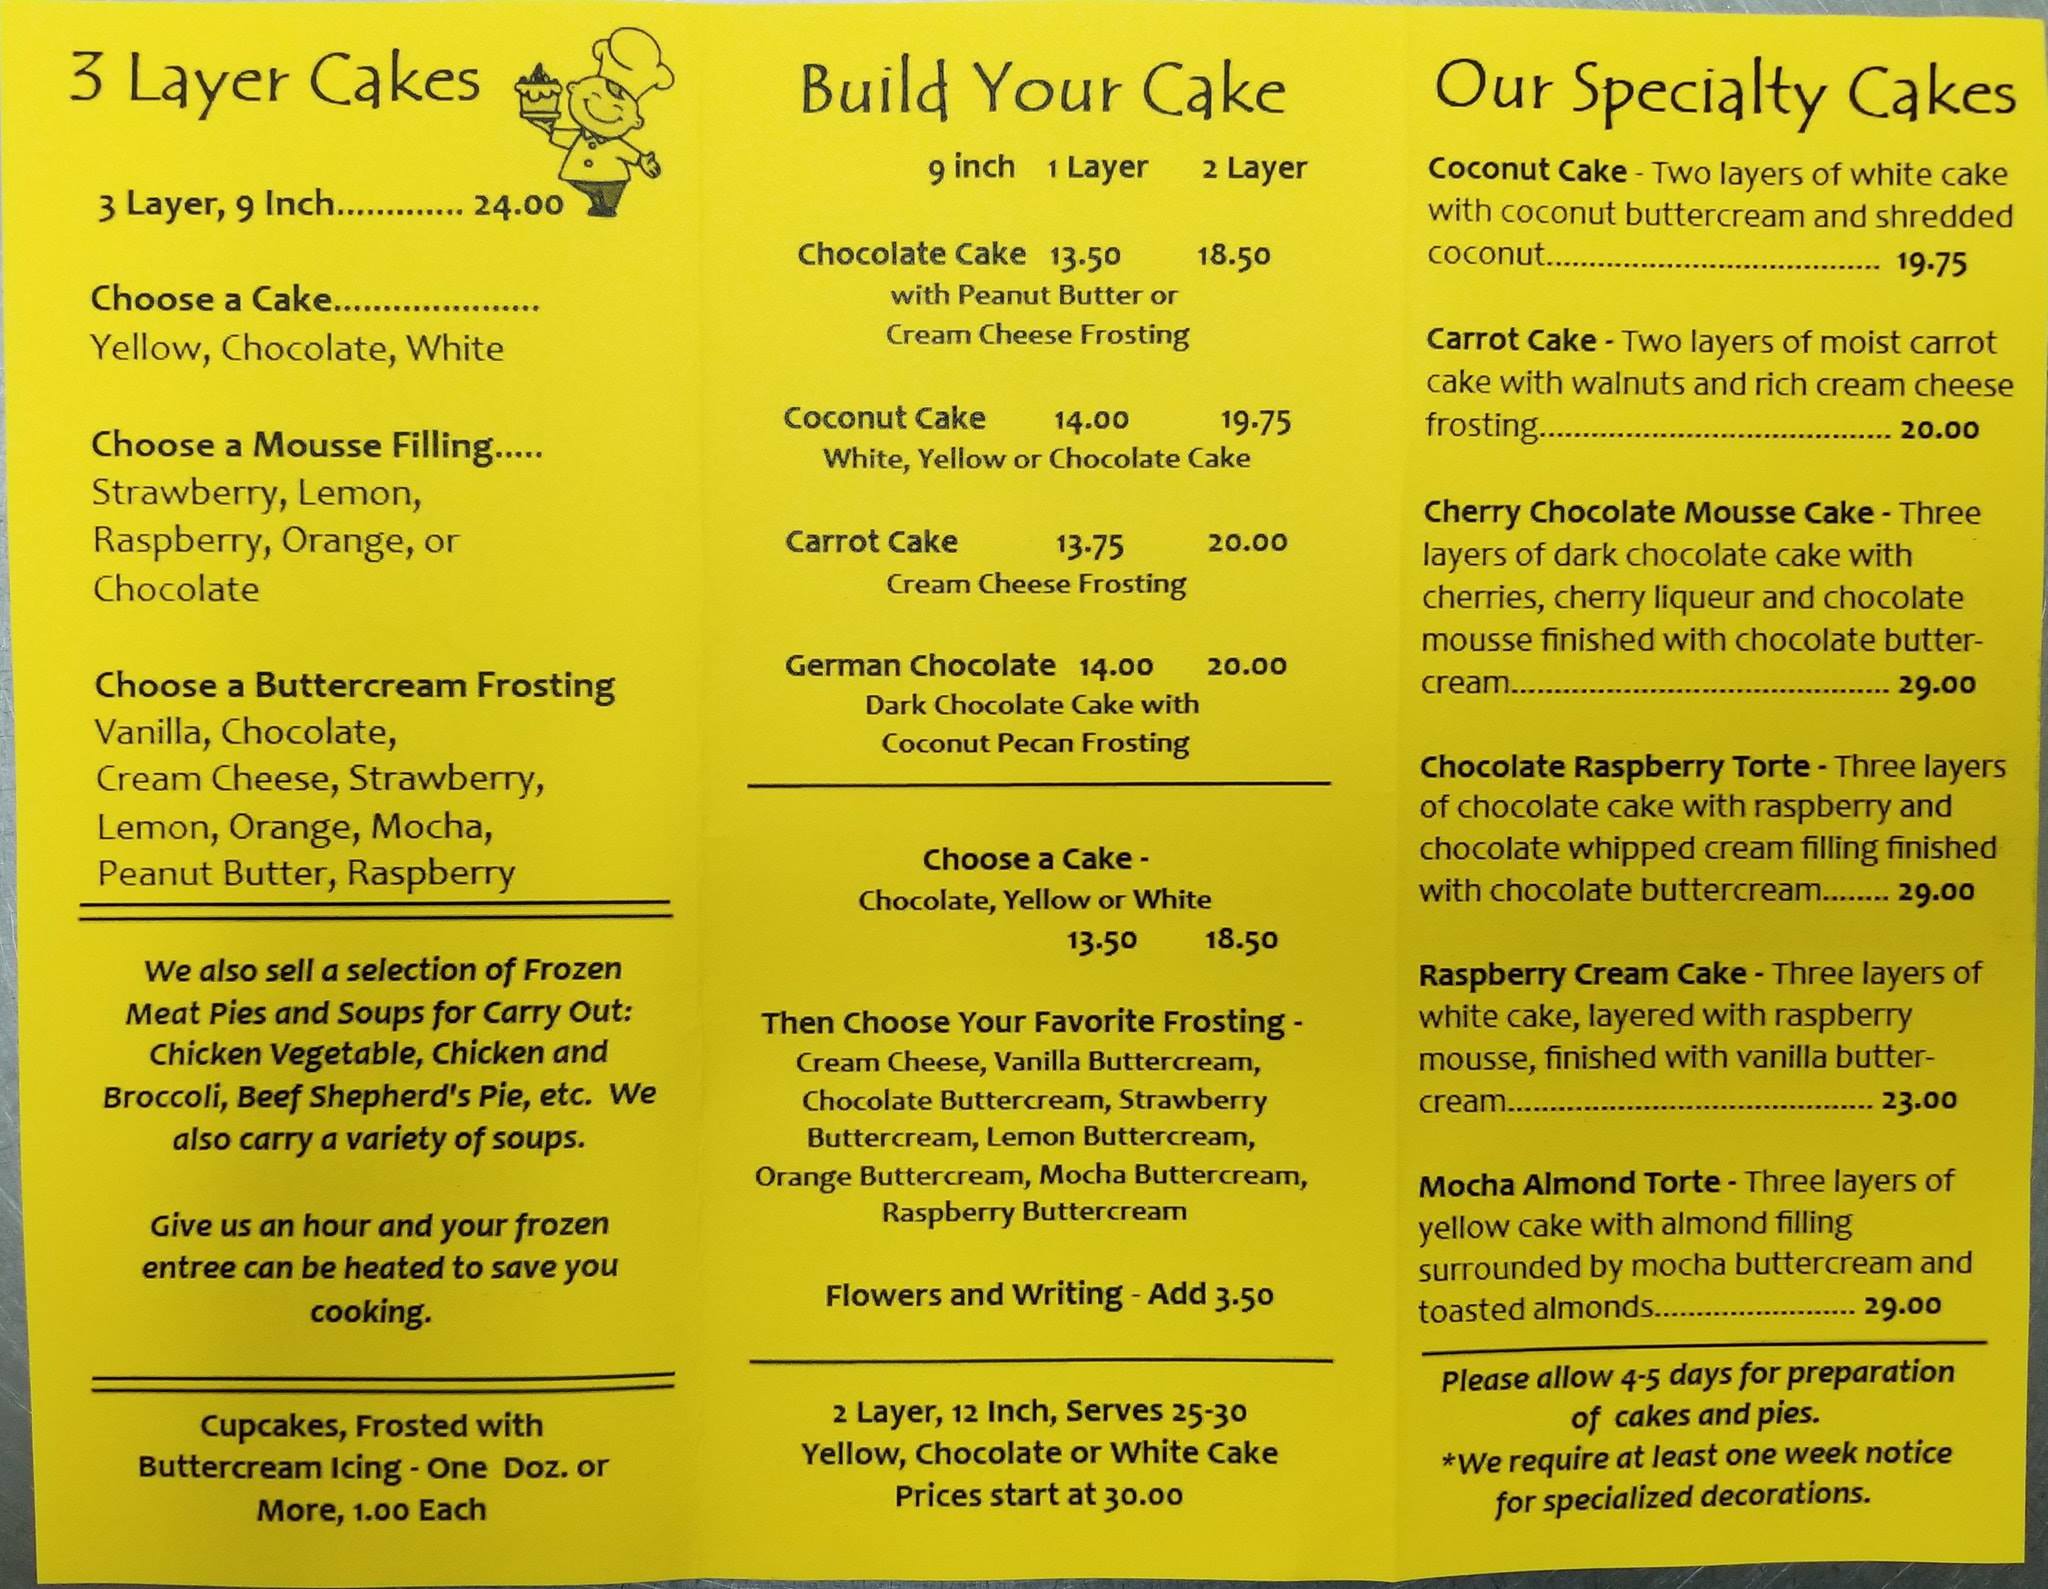 3 Layer Cakes
3 Layer, 9 Inch............. 24.00
Choose a Cake.....................
Yellow, Chocolate, White
Choose a Mousse Filling.....
Strawberry, Lemon,
Raspberry, Orange, or
Chocolate
Choose a Buttercream Frosting
Vanilla, Chocolate,
Cream Cheese, Strawberry,
Lemon, Orange, Mocha,
Peanut Butter, Raspberry
We also sell a selection of Frozen
Meat Pies and Soups for Carry Out:
Chicken Vegetable, Chicken and
Broccoli, Beef Shepherd's Pie, etc. We
also carry a variety of soups.
Give us an hour and your frozen
entree can be heated to save you
cooking.
Cupcakes, Frosted with
Buttercream Icing - One Doz. or
More, 1.00 Each
Build Your Cake
9 inch 1 Layer 2 Layer
Chocolate Cake 13.50 18.50
with Peanut Butter or
Cream Cheese Frosting
Coconut Cake 14.00 19.75
White, Yellow or Chocolate Cake
Carrot Cake 13.75 20.00
Cream Cheese Frosting
German Chocolate 14.00 20.00
Dark Chocolate Cake with
Coconut Pecan Frosting
Choose a Cake -
Chocolate, Yellow or White
13.50 18.50
Then Choose Your Favorite Frosting -
Cream Cheese, Vanilla Buttercream,
Chocolate Buttercream, Strawberry
Buttercream, Lemon Buttercream,
Orange Buttercream, Mocha Buttercream,
Raspberry Buttercream
Flowers and Writing - Add 3.50
2 Layer, 12 Inch, Serves 25-30
Yellow, Chocolate or White Cake
Prices start at 30.00
Our Specialty Cakes
Coconut Cake - Two layers of white cake
with coconut buttercream and shredded
coconut........................................ 19.75
Carrot Cake - Two layers of moist carrot
cake with walnuts and rich cream cheese
frosting.......................................... 20.00
Cherry Chocolate Mousse Cake - Three
layers of dark chocolate cake with
cherries, cherry liqueur and chocolate
mousse finished with chocolate butter-
cream............................................. 29.00
Chocolate Raspberry Torte - Three layers
of chocolate cake with raspberry and
chocolate whipped cream filling finished
with chocolate buttercream........ 29.00
Raspberry Cream Cake - Three layers of
white cake, layered with raspberry
mousse, finished with vanilla butter-
cream............................................ 23.00
Mocha Almond Torte - Three layers of
yellow cake with almond filling
surrounded by mocha buttercream and
toasted almonds........................ 29.00
Please allow 4-5 days for preparation
of cakes and pies.
*We require at least one week notice
for specialized decorations.